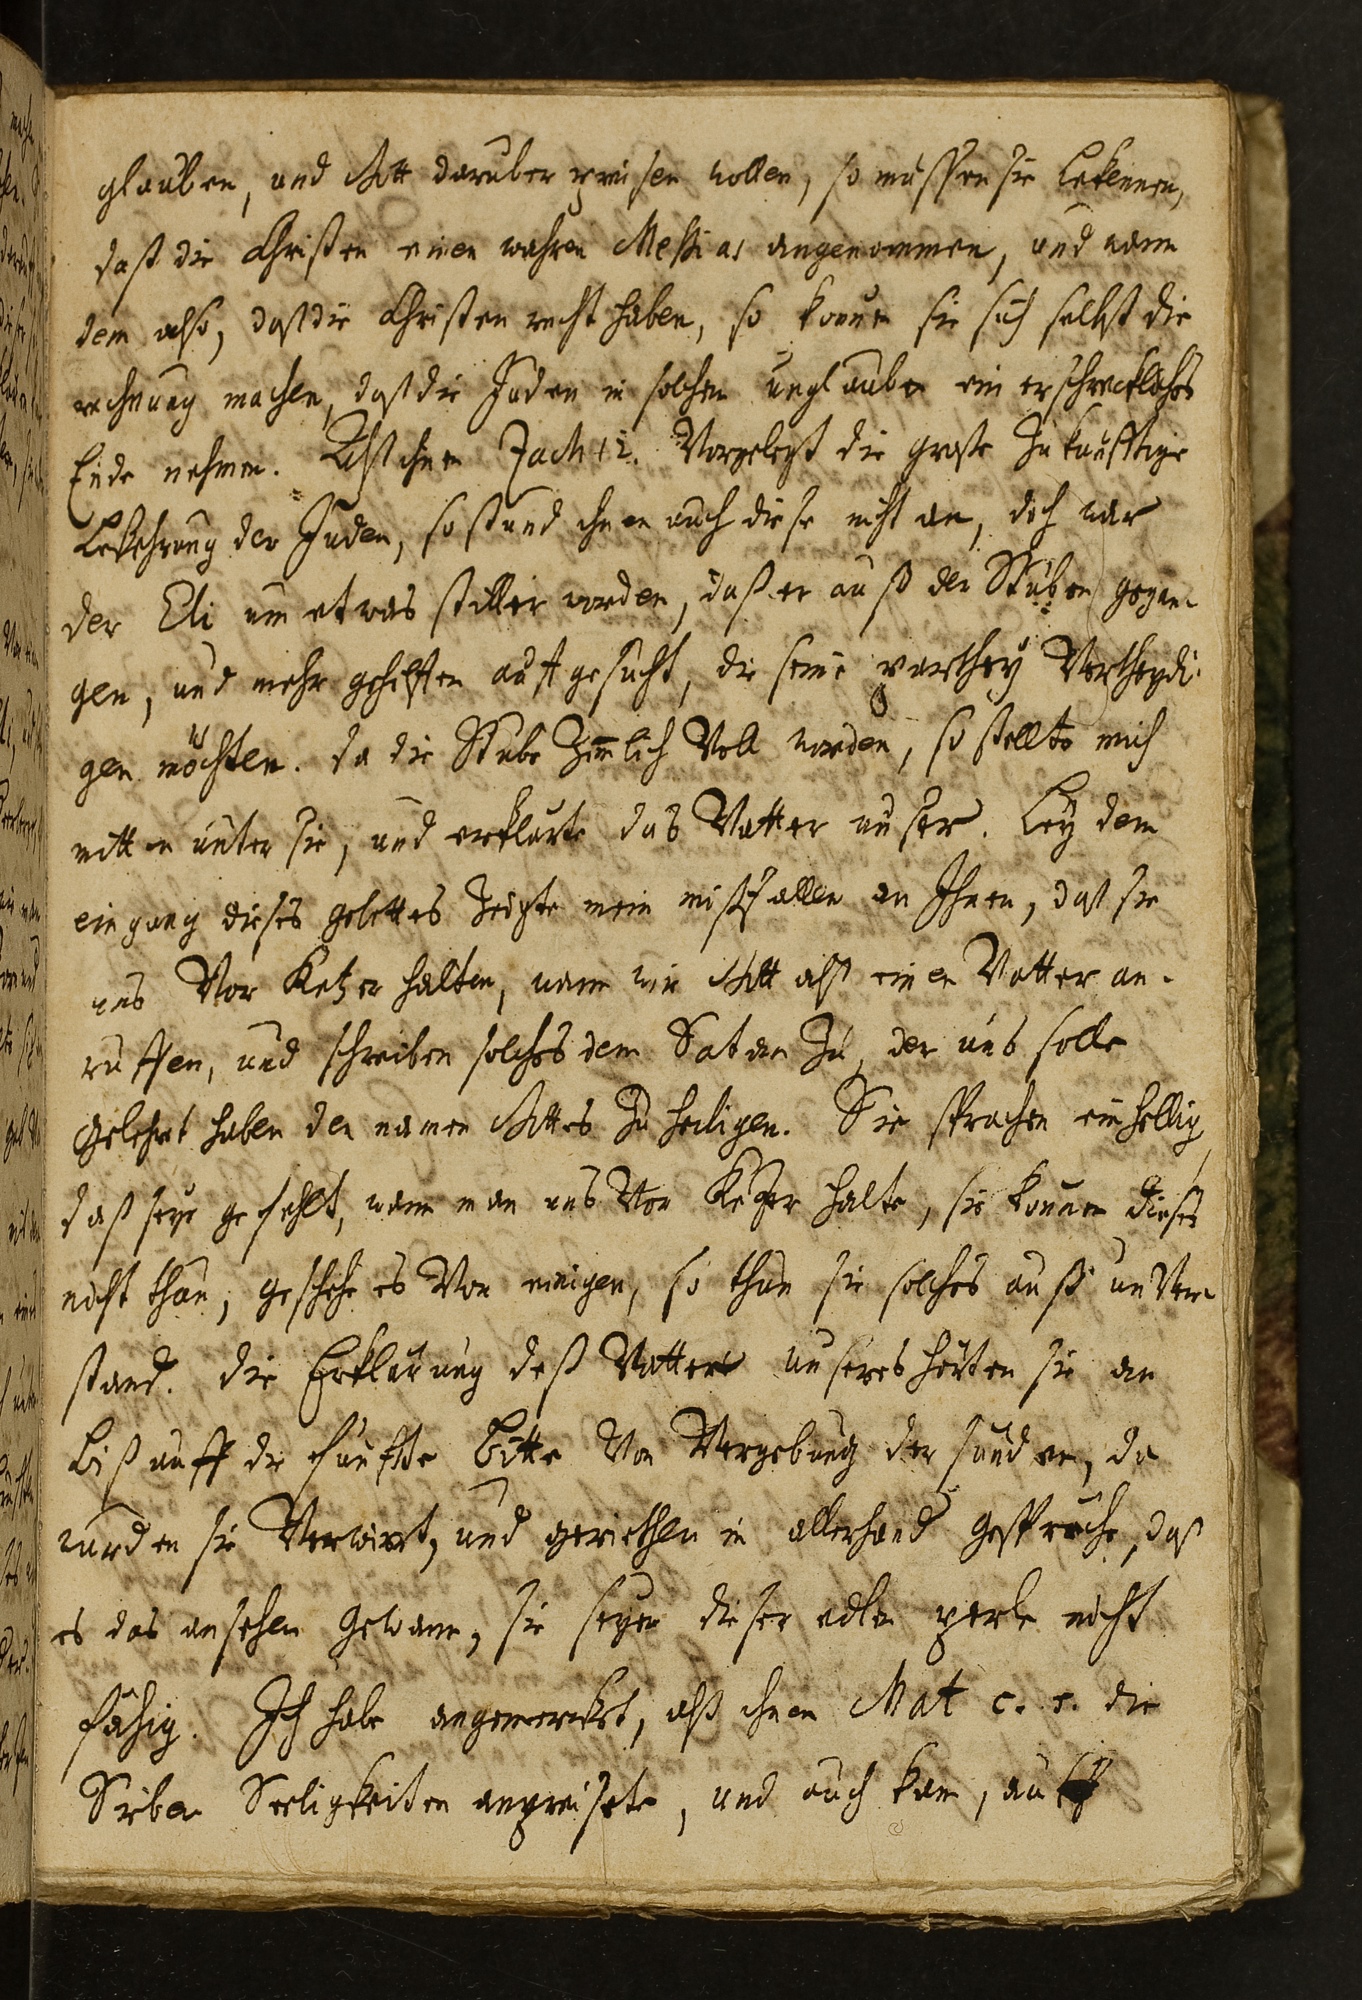 glauben, und Gott darüber preisen wollen, so müssen sie bekennen,
daß die Christen einen wahren Messias angenommen, und wann
dem also, daß die Christen recht haben, so können sie sich selbst die
rechnung machen, daß die Juden in solchem unglauben ein erschreckliches
Ende nehmen. Alß ihnen Zach 12. Vorgelegt die große Zukünfftige
bekehrung der Juden, so stund ihnen auch diese nicht an, doch war
der Eli um etwas stiller worden, daß er auß der Stuben gegan-
gen, und mehr gehülffen aufgesucht, die seine parthey Vertheydi-
gen möchten. da die Stube Zimlich Voll worden, so stellte mich
mitten unter sie, und erklärte das Vatter unser. bey dem
eingang dieses gebettes Zeigte mein mißfallen an Ihnen, daß sie
uns Vor Ketzer halten, wann wir Gott alß einen Vatter an-
ruffen, und schreiben solches dem Satan Zu, der uns solle
gelehrt haben den namen Gottes Zu heiligen. Sie sprachen einhellig,
daß seye gefehlt, wann man uns Vor Ketzer halte, sie können dieses
nicht thun, geschehe es Von einigen, so thun sie solches auß unVer-
stand. die Erklärung deß Vatters unseres hörten sie an
biß auff die fünffte bitte Von Vergebung der sünden, da
wurden sie Verwirrt, und geriethen in allerhand gespräche, daß
es das ansehen gewann, sie seyen dieser edlen perle nicht
fähig. Ich habe angemerckt, alß ihnen Mat c. 5. die
Sieben Seeligkeiten anpreisete, und auch kam, auff